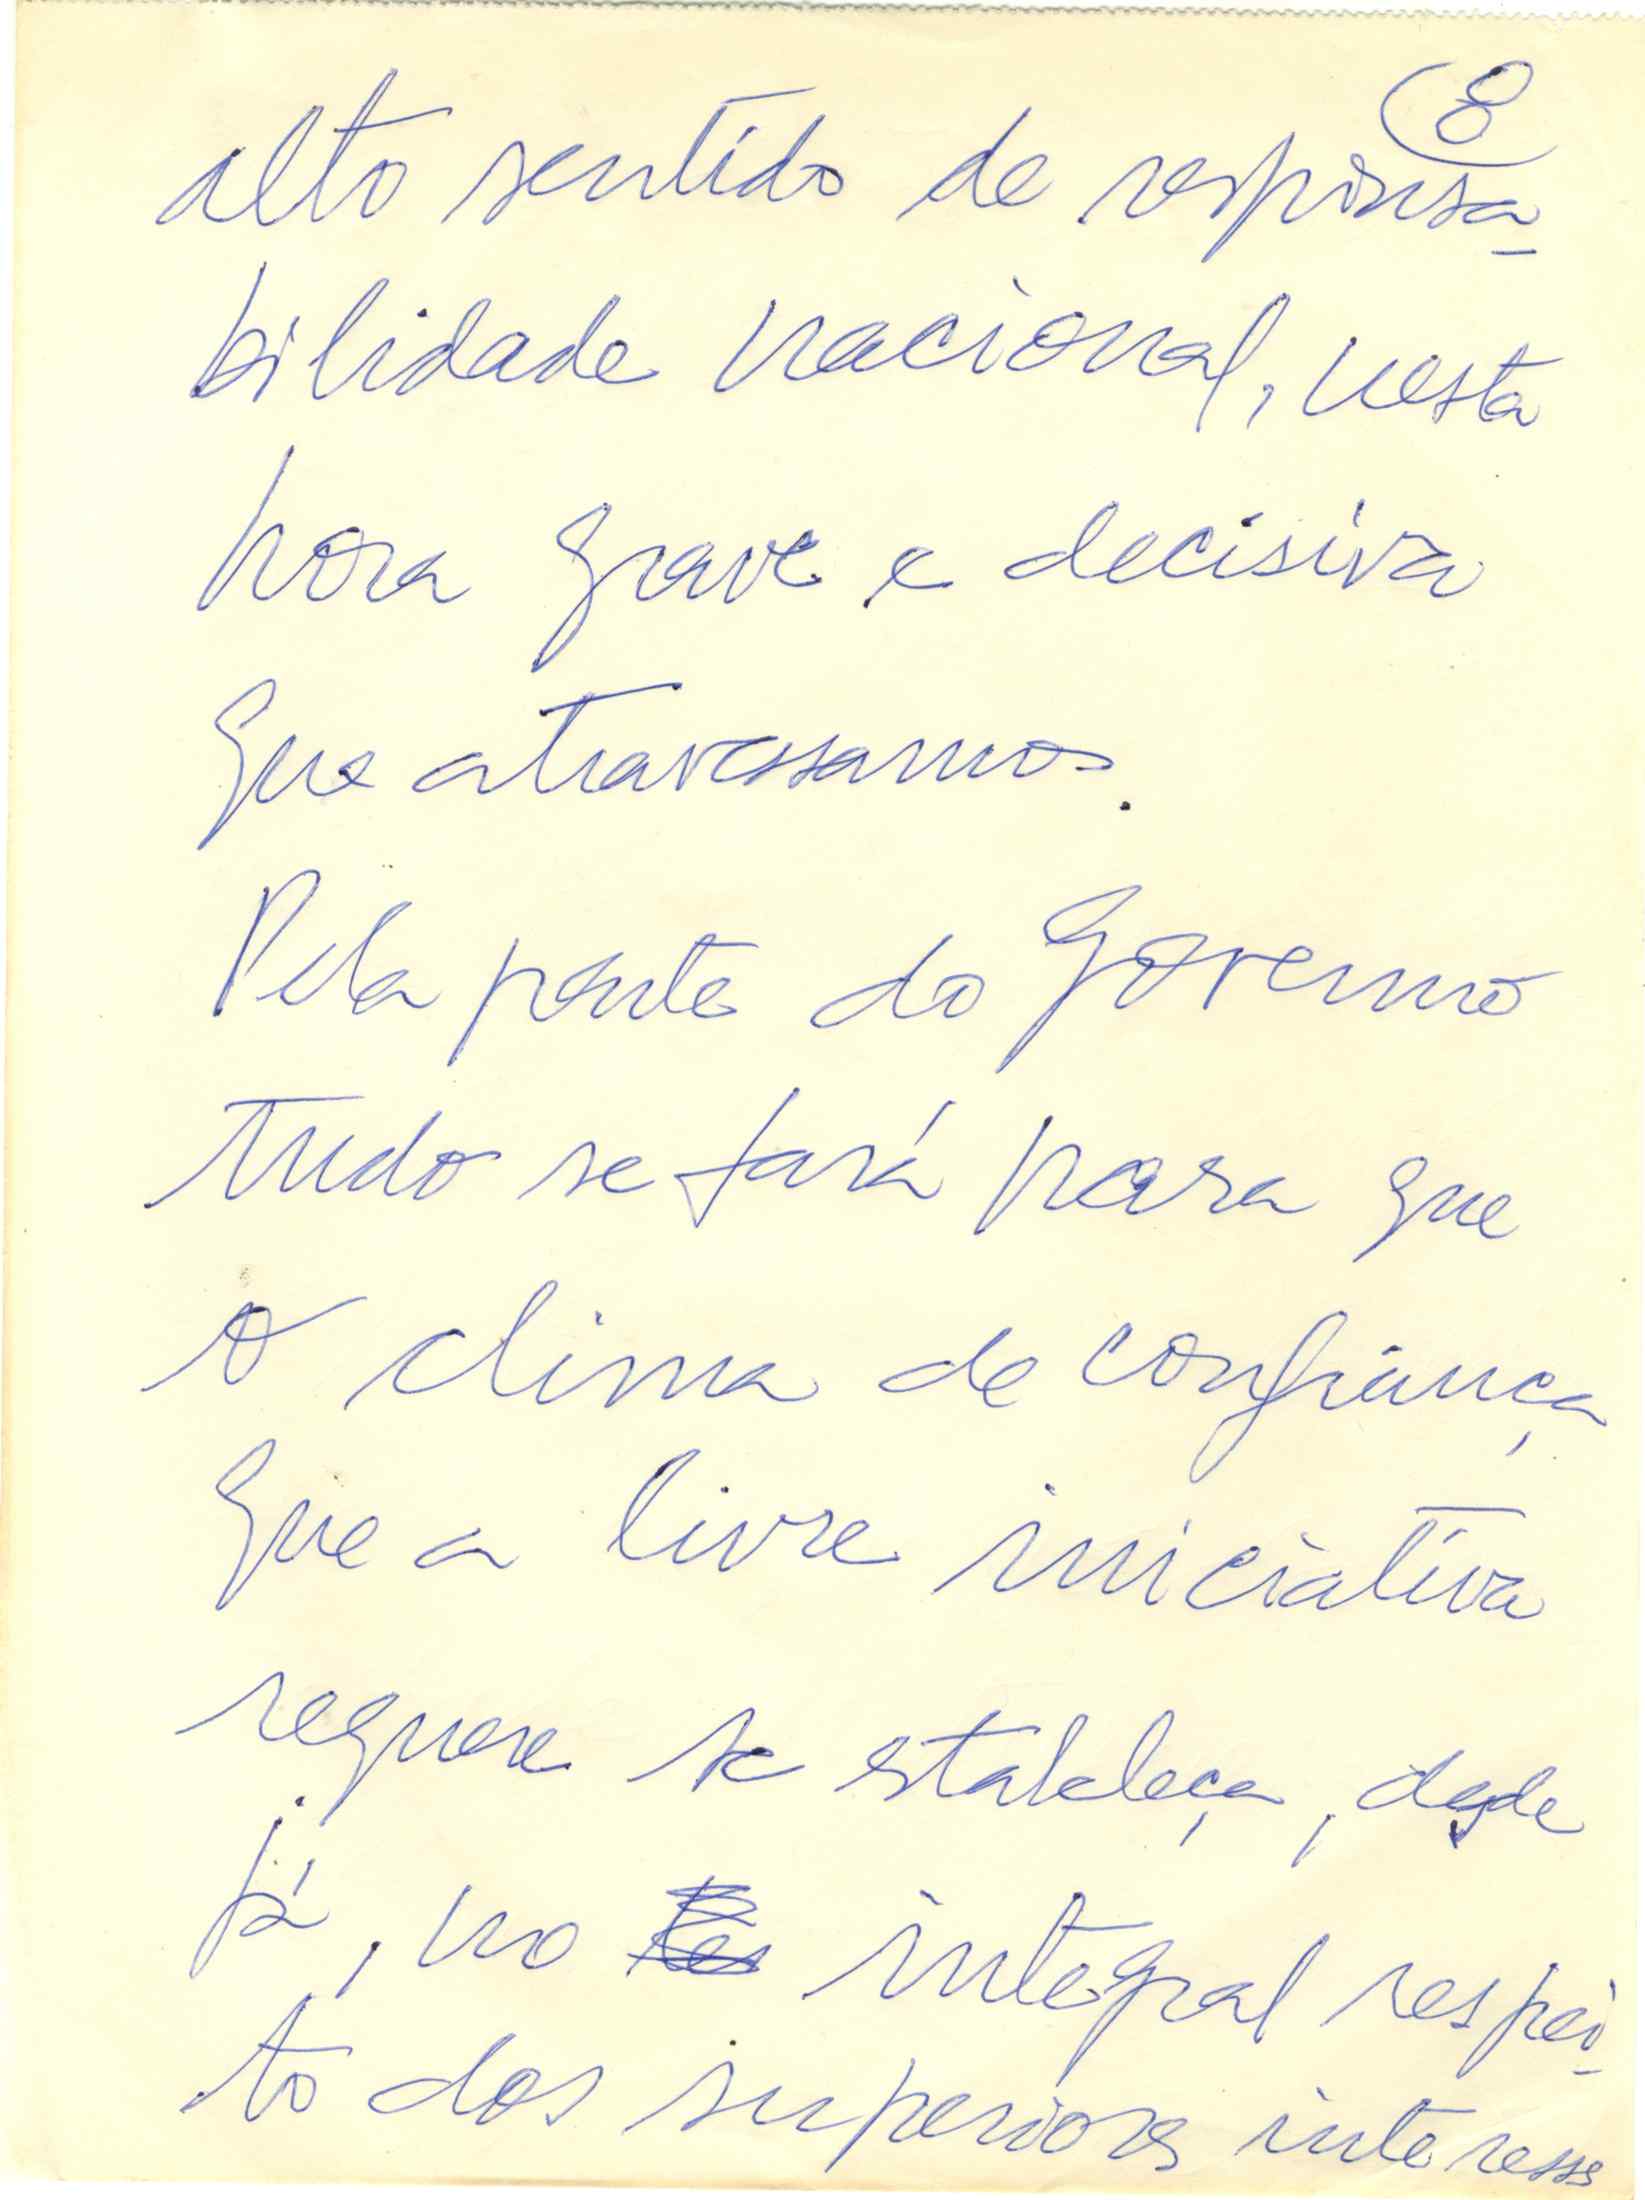 8
alto sentido de responsa-
bilidade nacional, nesta
hora grave e decisiva
que atravessamos.
Pela parte do Governo
tudo se fará para que
o clima de confiança
que a livre iniciativa
requere se estabeleça, desde
já, no integral respei-
to dos superiores interesses